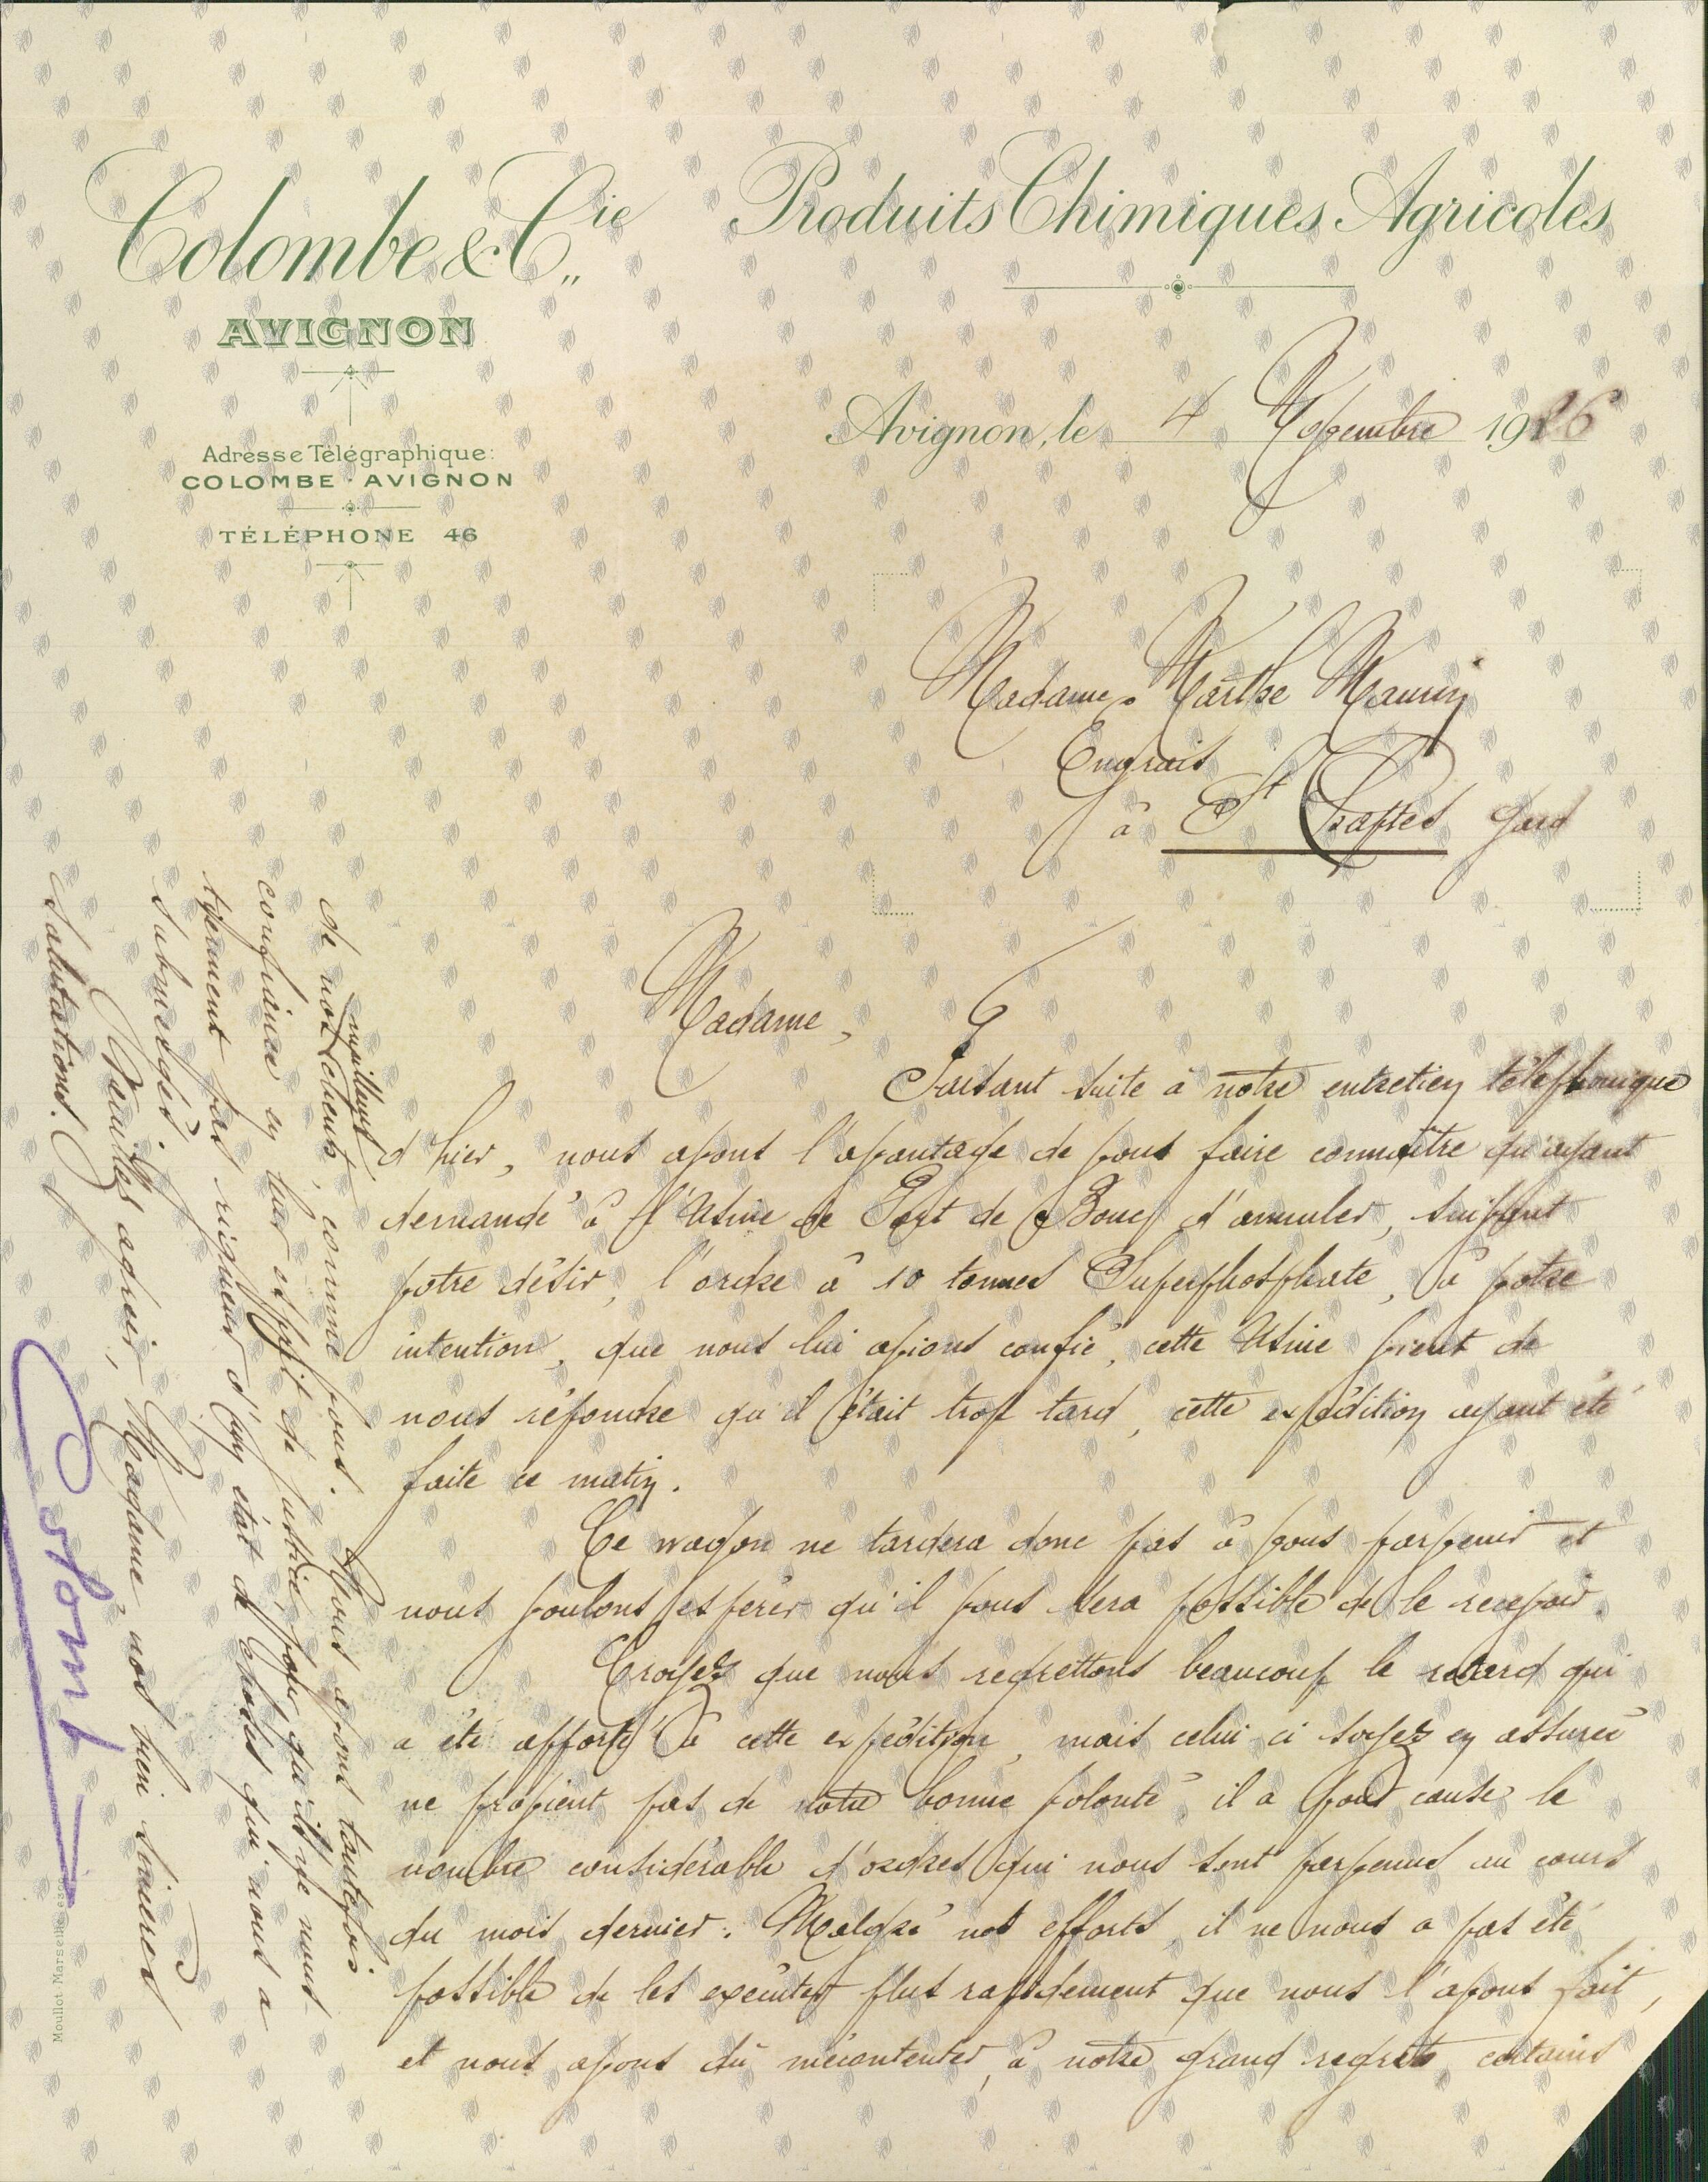 Colombe & Cie
Produits Chimiques Agricoles
AVIGNON
Adresse Télégraphique:
COLOMBE - AVIGNON
TÉLÉPHONE 46
Avignon, le 4 Novembre 1926
Madame Marthe Maurin
Engrais
à St Chaptes Gard
Madame,
Faisant suite à notre entretien téléphonique
d'hier, nous avons l'avantage de vous faire connaître qu'ayant
demandé à l'Usine de Port de Bouc d'annuler, suivant
votre désir, l'ordre à 10 tonnes Superphosphate, à votre
intention, que nous lui avions confié, cette Usine vient de
nous répondre qu'il était trop tard, cette expédition ayant été
faite ce matin.
Ce wagon ne tardera donc pas à vous parvenir et
nous voulons espérer qu'il vous sera possible de le recevoir.
Croyez que nous regrettons beaucoup le retard qui
a été apporté à cette expédition, mais celui-ci soyez en assurée
ne provient pas de notre bonne volonté, il a pour cause le
nombre considérable d'ordres qui nous sont parvenus au cours
du mois dernier. Malgré nos efforts, il ne nous a pas été
possible de les exécuter plus rapidement que nous l'avons fait,
et nous avons dû mécontenter, à notre grand regret, certains
de nos meilleurs clients, comme vous. Nous avons toutefois
confiance en leur esprit de justice, pour qu'ils ne nous
tiennent pas rigueur d'un état de choses qui nous a
submergés.
Veuillez agréer, Madame, nos bien sincères
salutations.
Moullot. Marseille